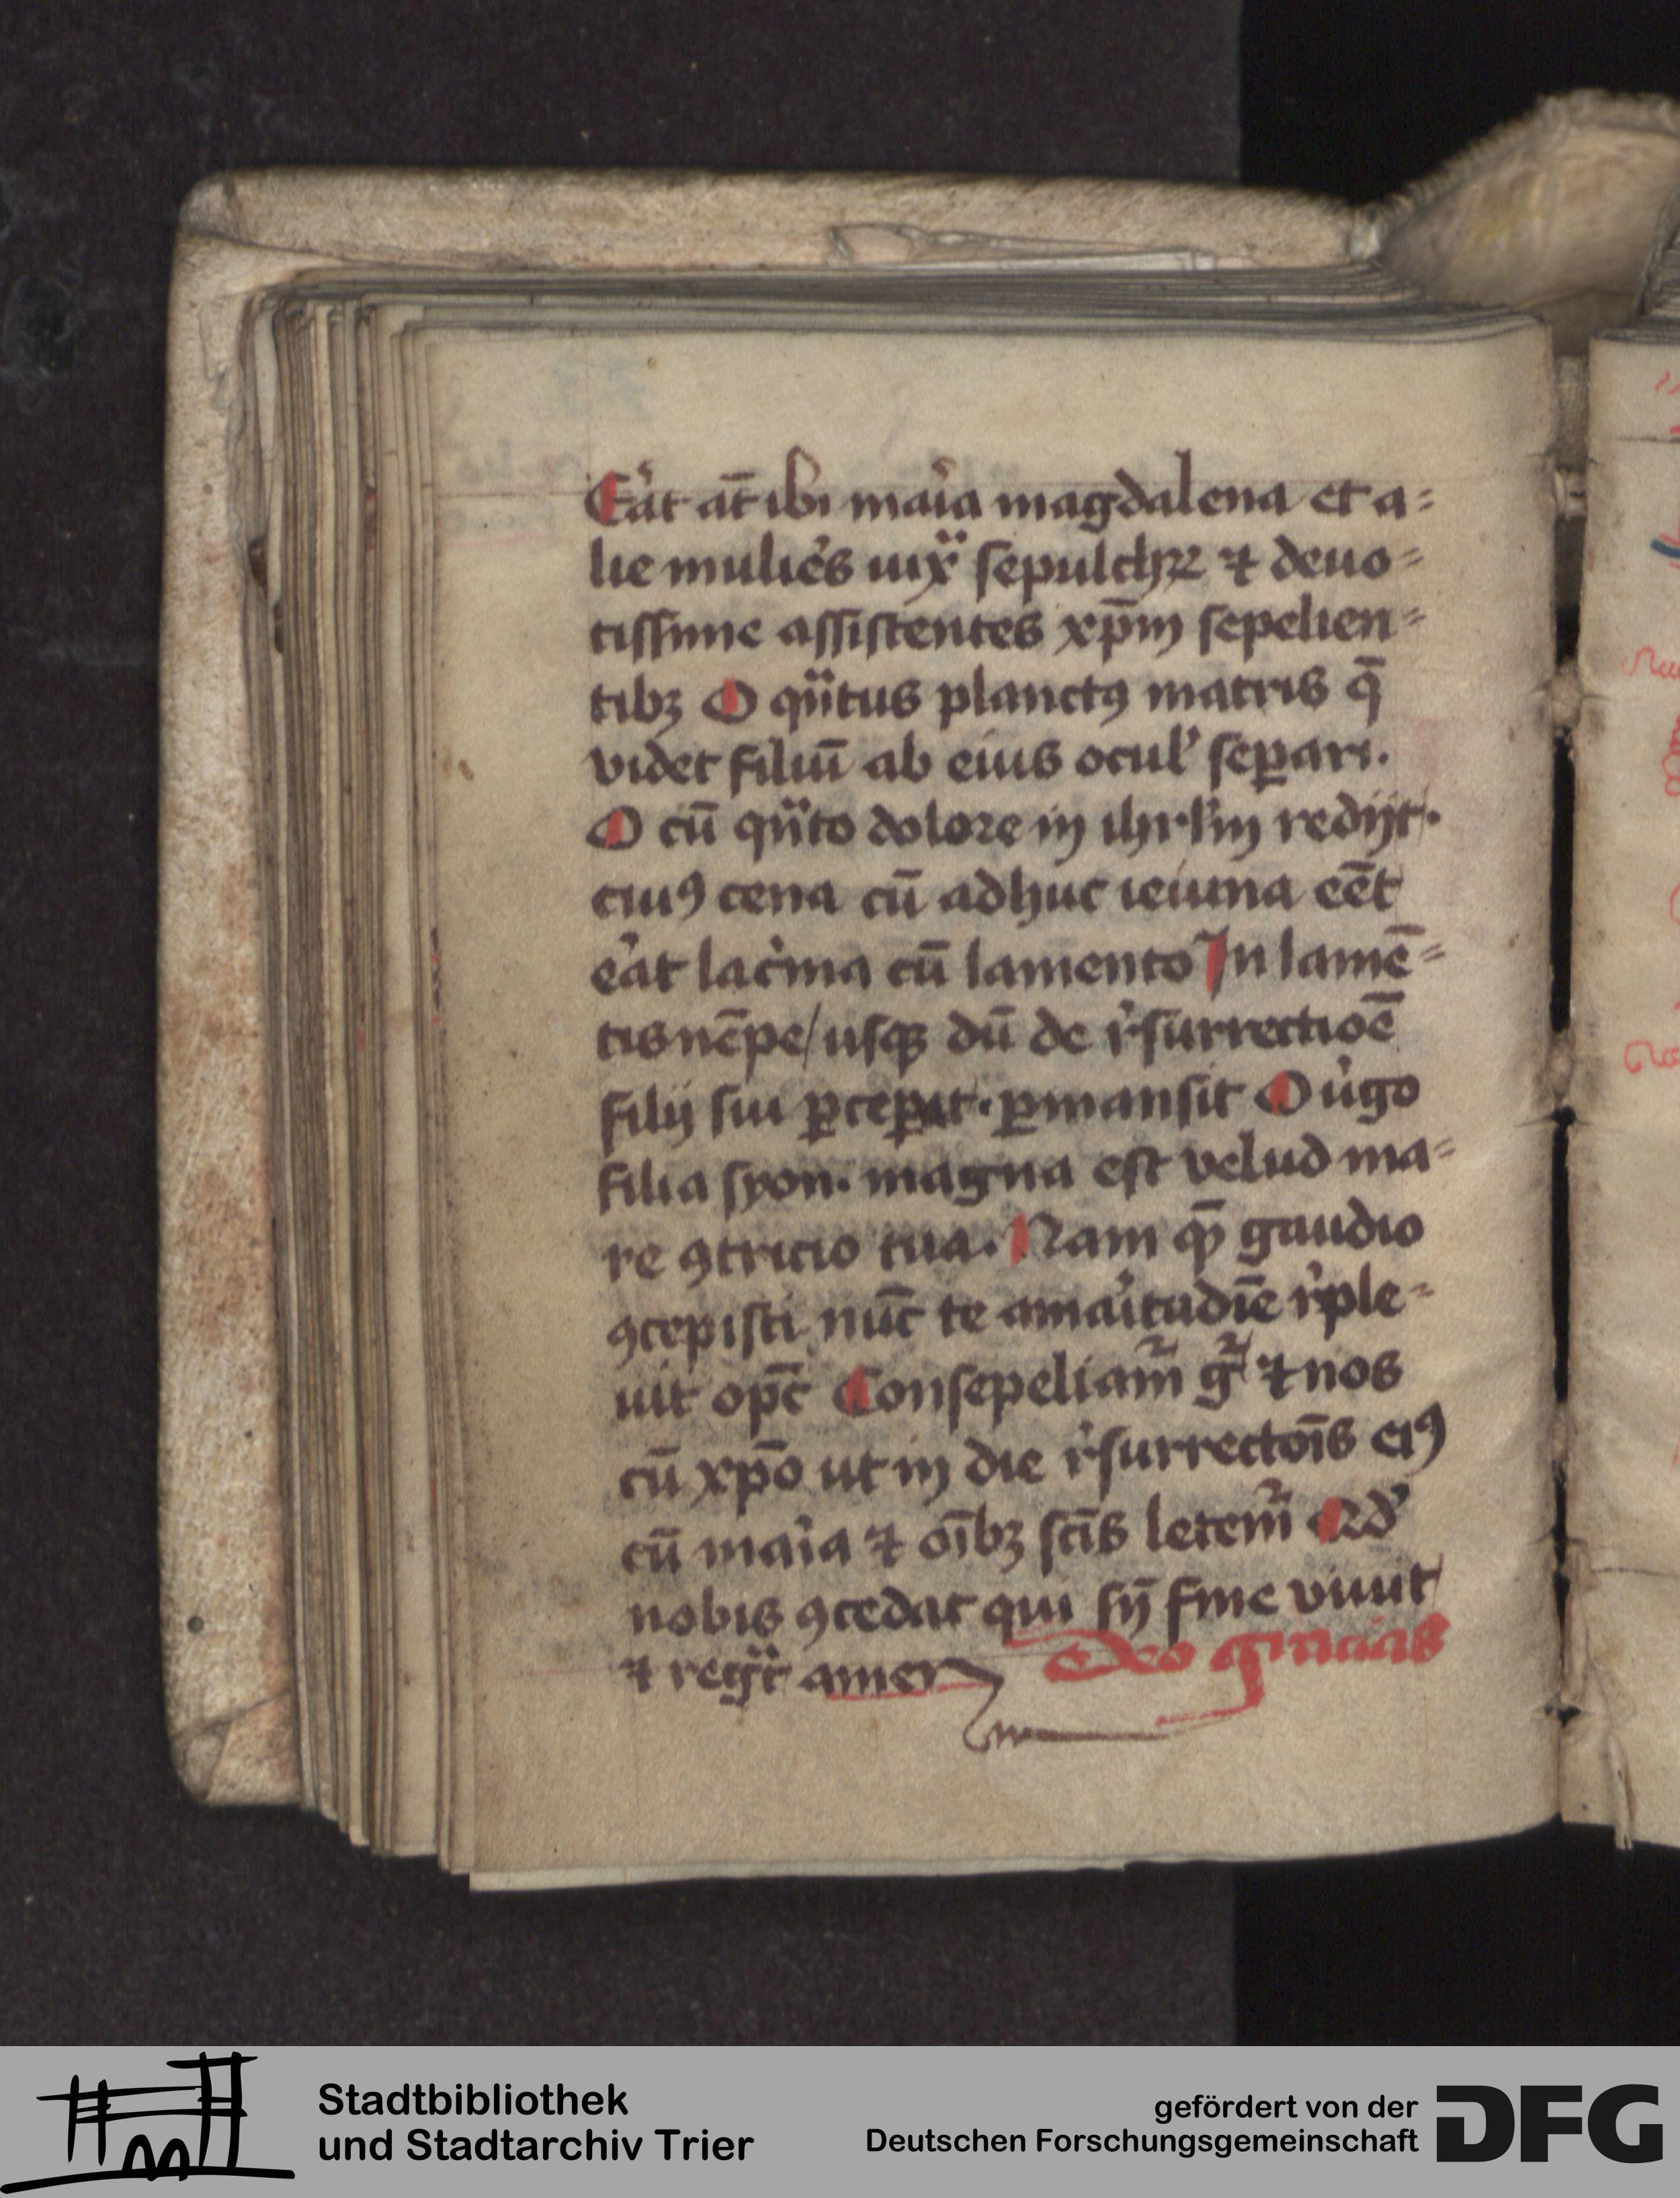 Eat at̄ ibi maia magdalena et a=
lie mulies iuxͣ sepulchꝝ ⁊ deuo=
tissime assistentes xp̄m sepelien=
tibꝫ O qͣtus planctꝰ matris q̄
videt filiū ab eius ocul' seꝑari.
O cū qͣto dolore in ihrl'm redijt.
cuiꝰ cena cū adhuc ieiuna eēt
eat lac͛ma cū lamento In lamē=
tis nēpe / usqꝫ dū de r͛surrectioē
filij sui ꝑcepit. ꝑmansit O u͛go
filia syon. magna est velud ma=
re ꝯtricio tua. Nam qͫ gaudio
ꝯcepisti nūc te amaitudīe r͛ple=
uit op̄c Consepeliam̃ g̃ ⁊ nos
cū xp̄o ut in die r͛surrectōis eiꝰ
cū maia ⁊ oībꝫ sc̄is letem̃ Qd'
nobis ꝯcedat qui sn̄ fine viuit
⁊ regͣt amen Deo gracias
Stadtbibliothek
und Stadtarchiv Trier
gefördert von der
Deutschen Forschungsgemeinschaft
DFG